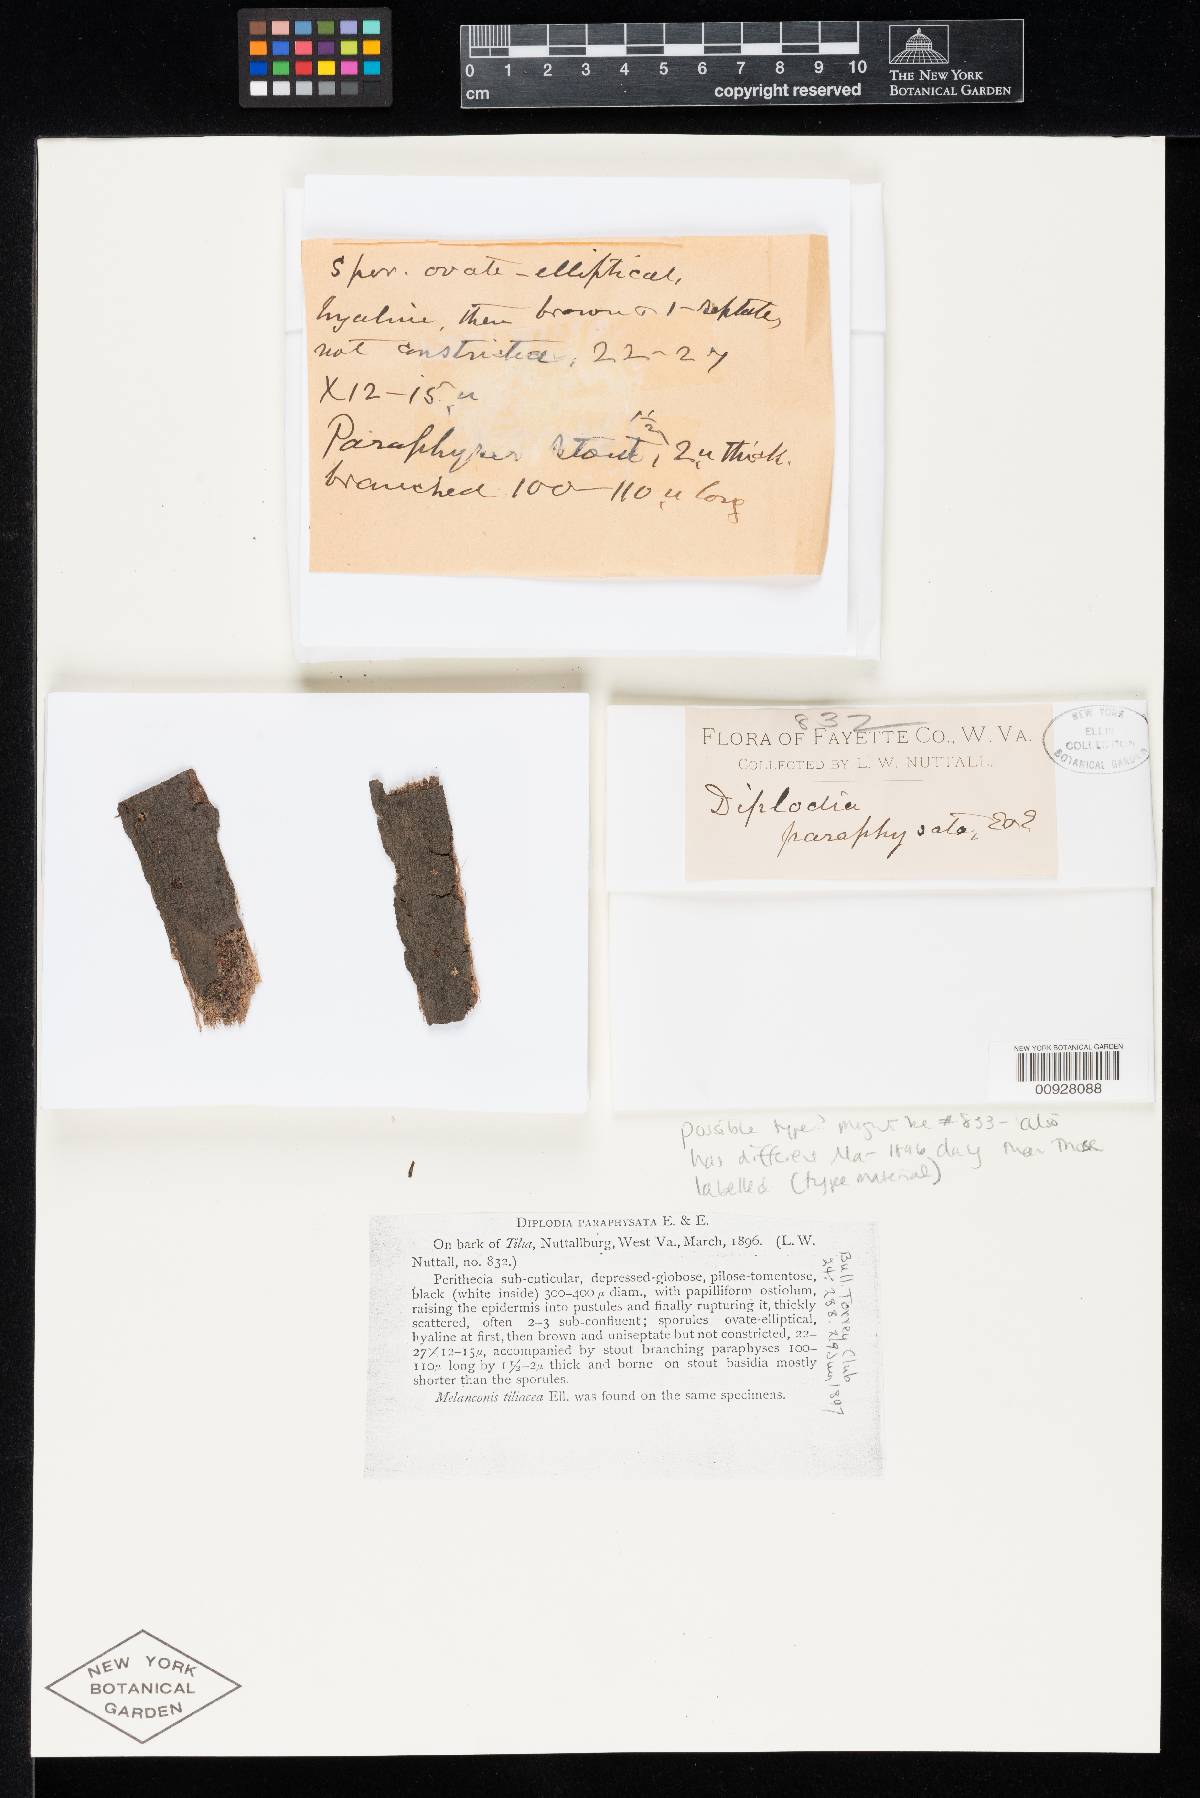 0 1 2 3 4 5 6 7 8 9 10
cm
copyright reserved
THE NEW YORK
BOTANICAL GARDEN
Spor. ovate-elliptical,
hyaline, then brown & 1-septate,
not constricted, 22-27
X12-15 µ
Paraphyses stout, 1½ 2µ thick.
branched 100-110 µ long
832
FLORA OF FAYETTE CO., W. VA.
COLLECTED BY L. W. NUTTALL.
Diplodia
paraphysata, E&E
NEW YORK
ELLIS
COLLECTION
BOTANICAL GARDEN
NEW YORK BOTANICAL GARDEN
00928088
possible type? might be #833 - also
has different Mar 1896 day than those
labelled (type material)
DIPLODIA PARAPHYSATA E. & E.
On bark of Tilia, Nuttallburg, West Va., March, 1896. (L. W.
Nuttall, no. 832.)
Perithecia sub-cuticular, depressed-globose, pilose-tomentose,
black (white inside) 300-400 µ diam., with papilliform ostiolum,
raising the epidermis into pustules and finally rupturing it, thickly
scattered, often 2-3 sub-confluent; sporules ovate-elliptical,
hyaline at first, then brown and uniseptate but not constricted, 22-
27×12-15µ, accompanied by stout branching paraphyses 100-
110µ long by 1½-2µ thick and borne on stout basidia mostly
shorter than the sporules.
Melanconis tiliacea Ell. was found on the same specimens.
Bull. Torrey Club
24: 288. 29 Jun 1897
NEW YORK
BOTANICAL
GARDEN